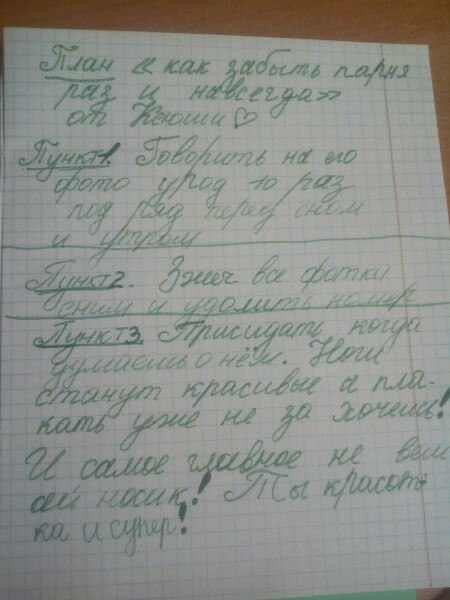 План « как забыть парня
раз и навсегда»
от Ксюши♡
Пункт1. Говорить на его
фото урод 10 раз
под ряд перед сном
и утром
Пункт2. Зжеч все фотки
сним и удолить номер
Пункт3 Присидать когда
думаешь о нём. Ноги
станут красивые а пла-
кать уже не за хочешь!
И самое главное не веш
ай носик! Ты красот-
ка и супер!